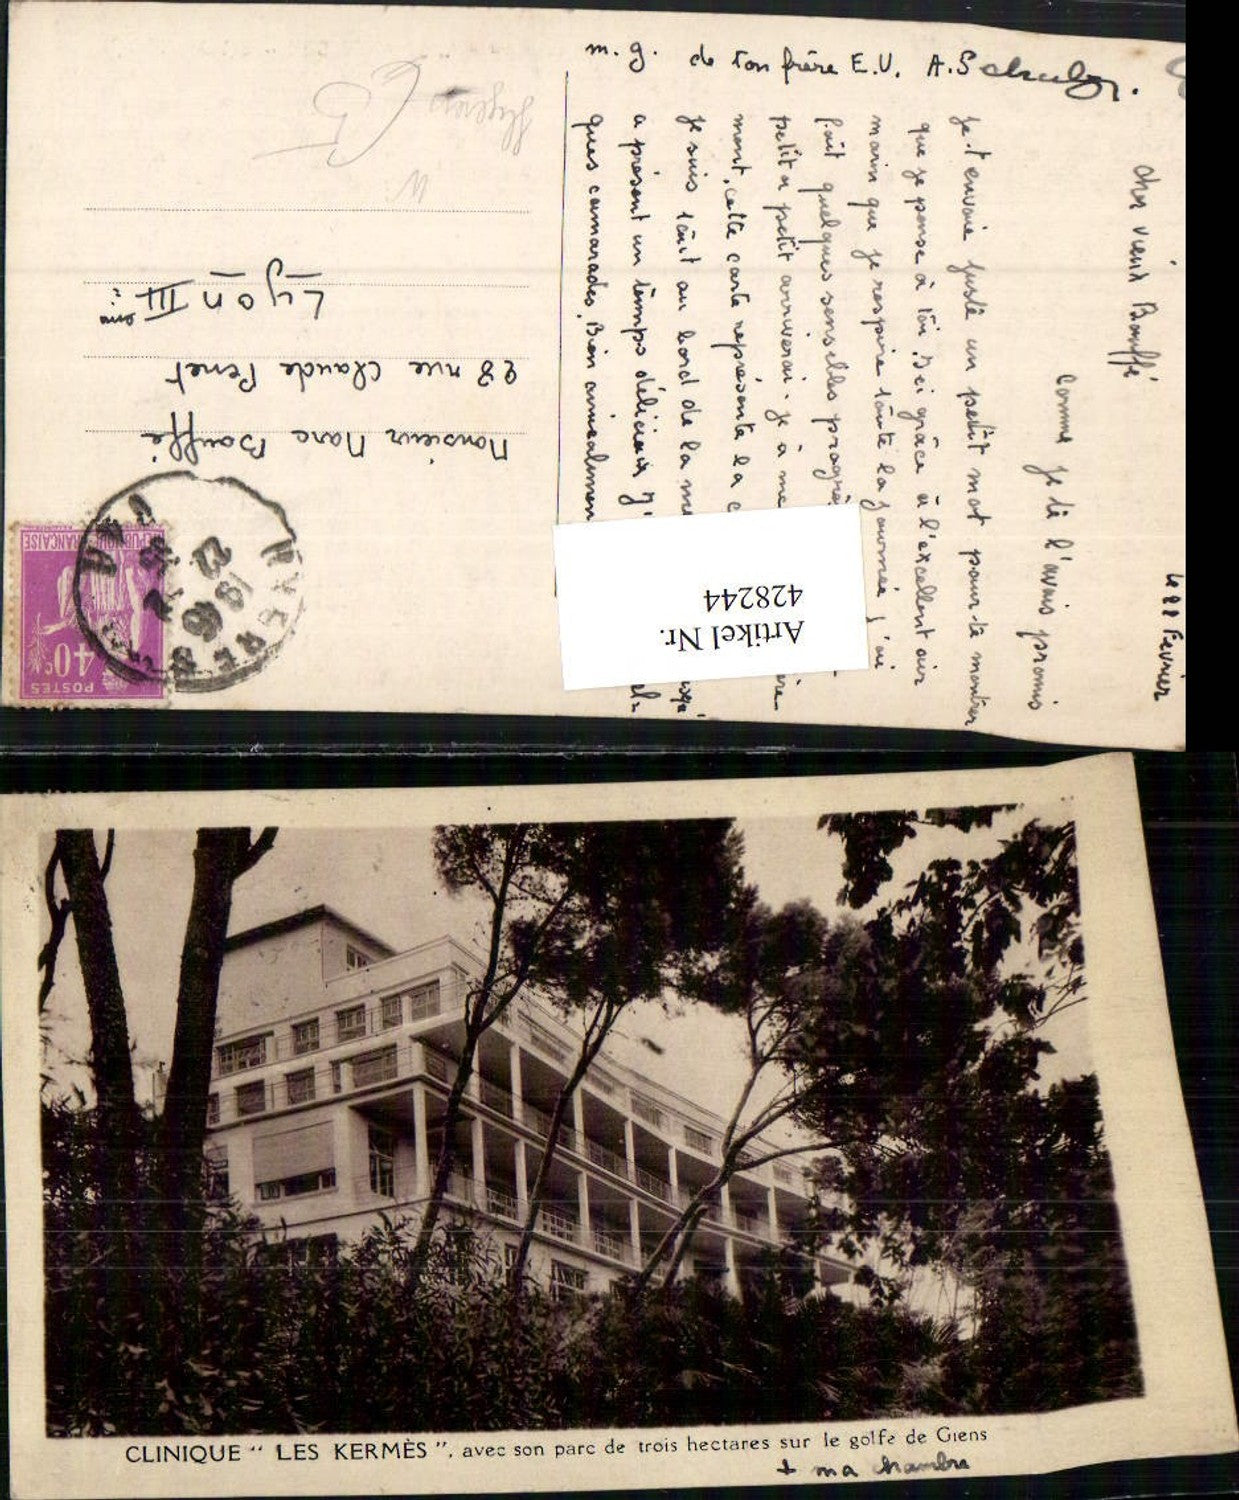 le 22 Fevrier
Cher vieux Bouffé
Comme je te l'avais promis
je t'envoie juste un petit mot pour te montrer
que je pense à toi. Ici grâce à l'excellent air
marin que je respire toute la journée j'ai
fait quelques sensibles progrès
petit a petit arriverai-je à me
ment, cette carte représente la c
je suis tout au bord de la me
a présent un temps délicieux j'
ques camarades. Bien amicalement
m. g. de ton frère E.U. A.
Artikel Nr.
428244
POSTES
40c
REPUBLIQUE FRANÇAISE
HYERES
19 45
22
VAR
Monsieur Marc Bouffé
28 rue Claude Penet
Lyon III ème
Hyères
CLINIQUE " LES KERMÈS ", avec son parc de trois hectares sur le golfe de Giens
+ ma chambre